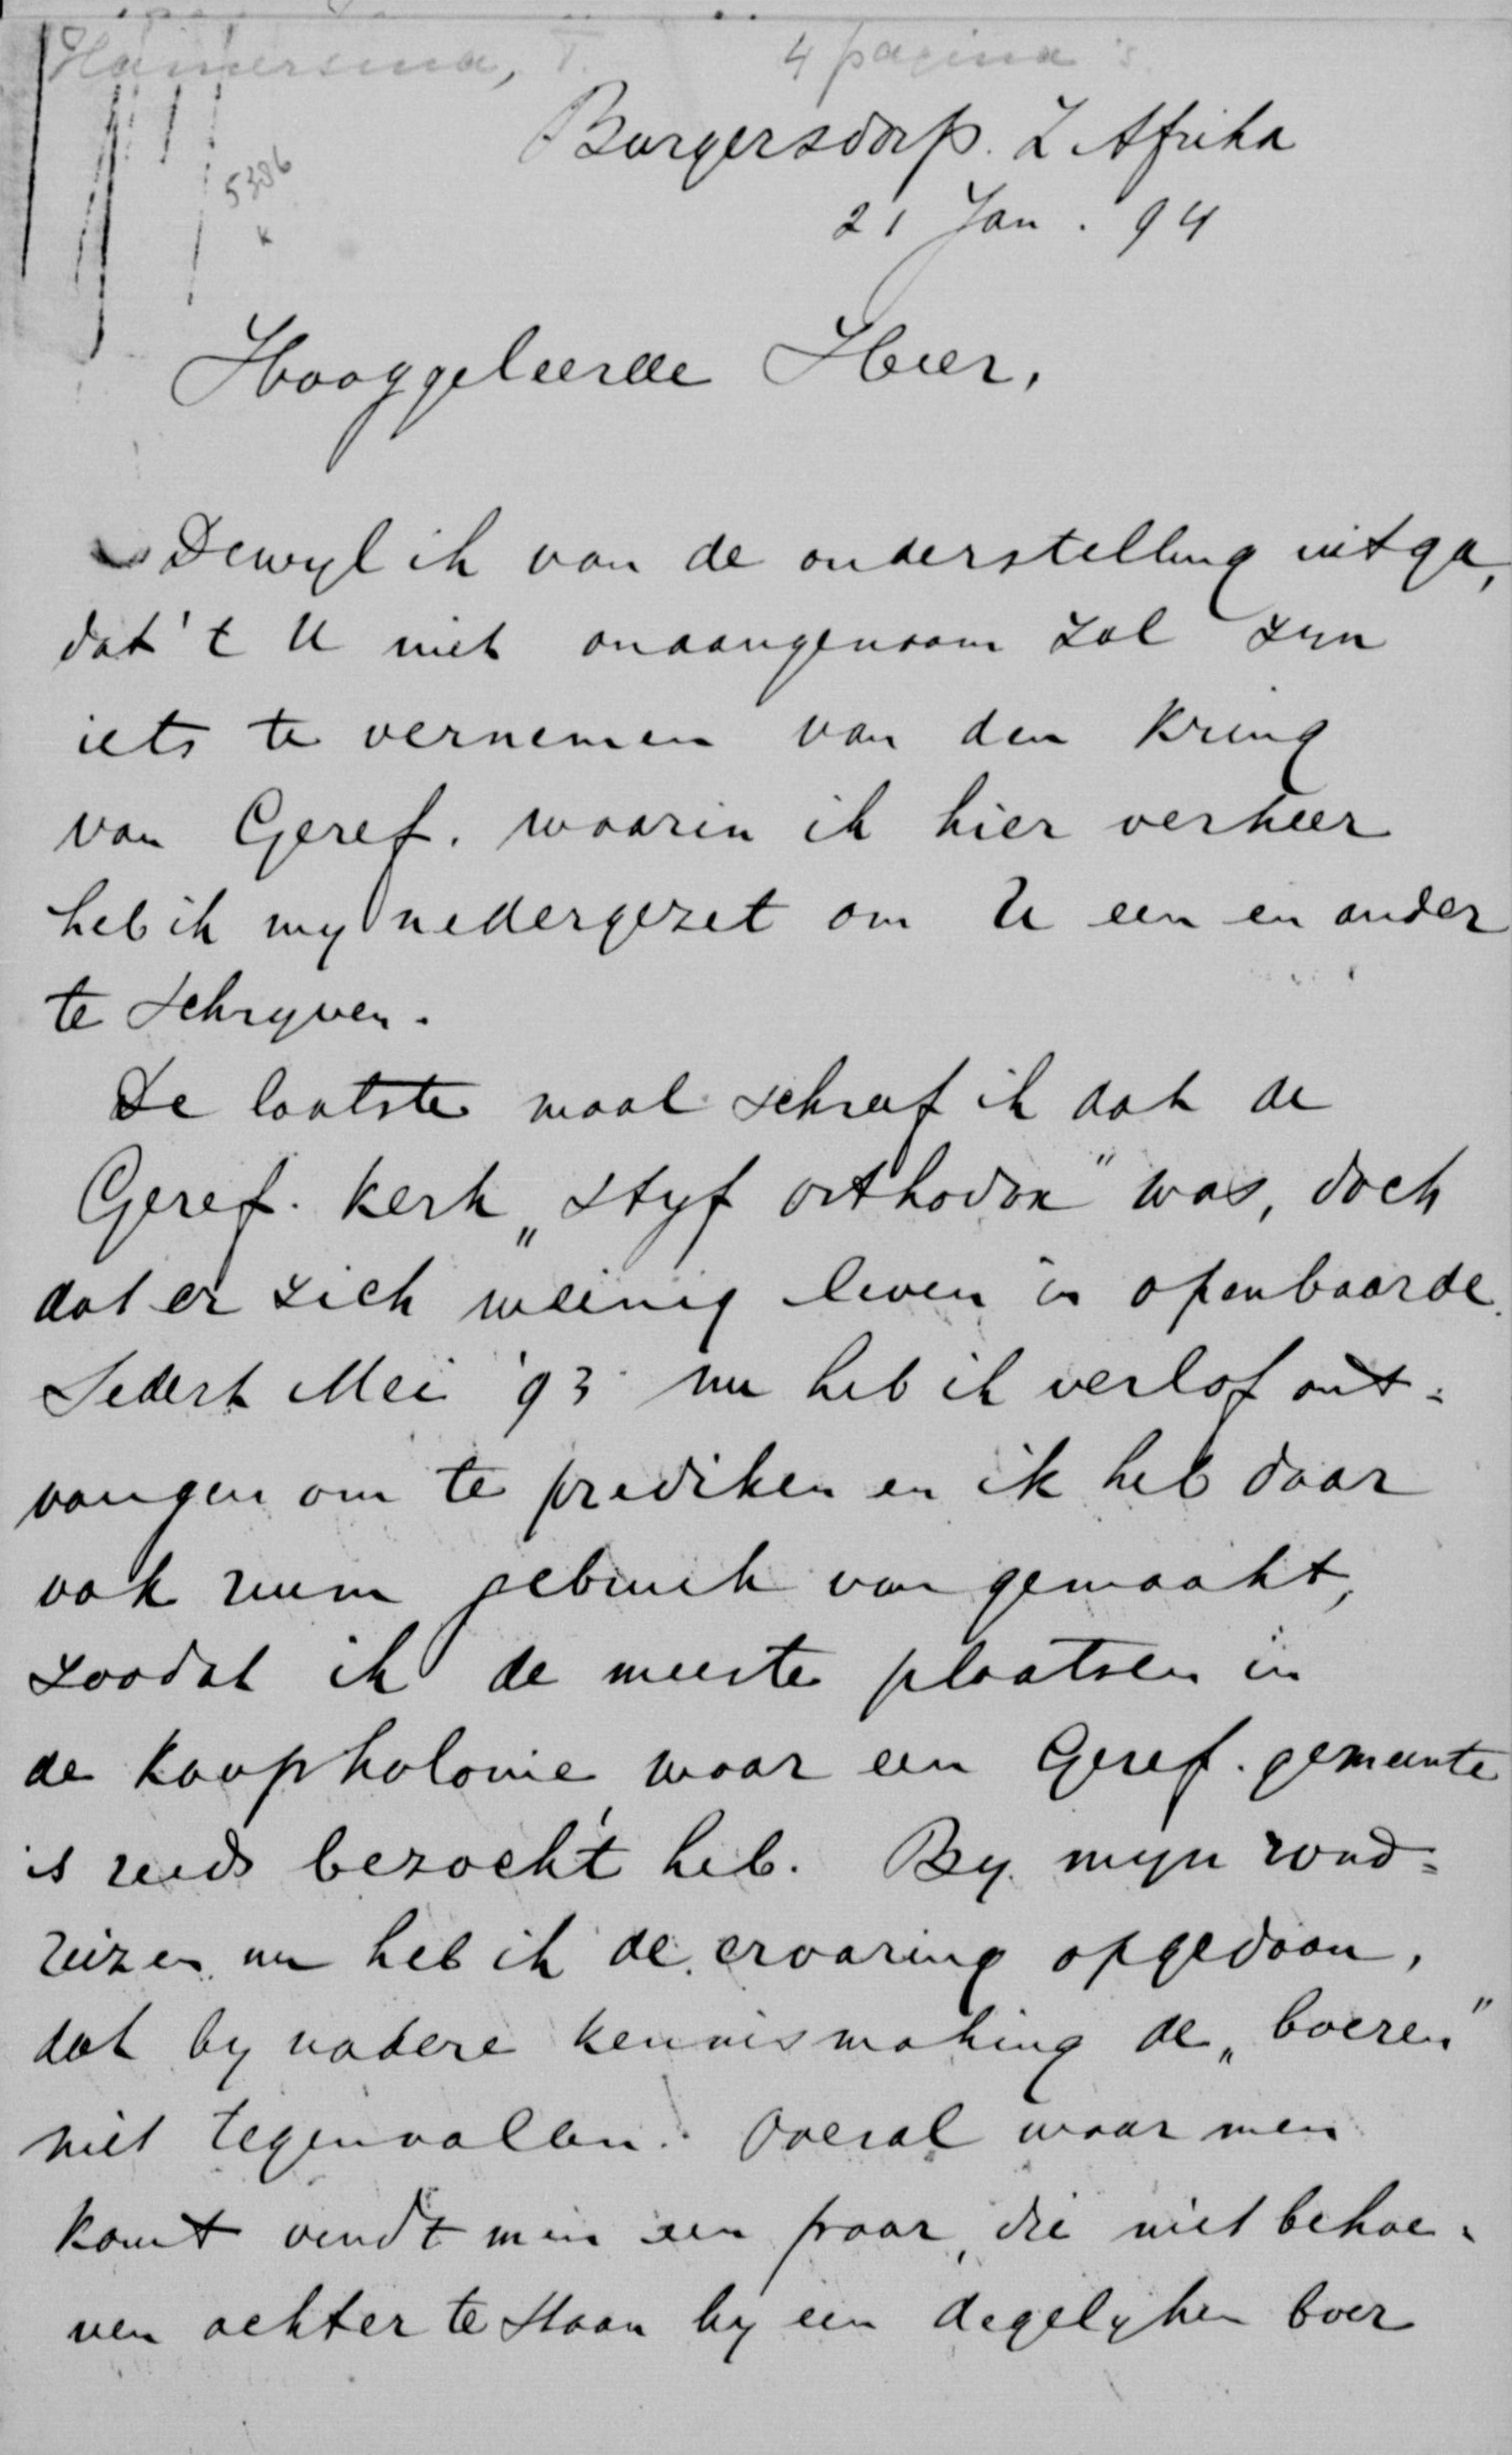 Hamersma, T. 4 pagina's
Burgersdorp. Z Afrika
5386
21 Jan. 94
Hooggeleerde Heer,
Dewyl ik van de onderstelling uitga,
dat 't U niet onaangenaam zal zyn
iets te vernemen van den kring
van Geref. waarin ik hier verkeer
heb ik my nedergezet om U een en ander
te schryven.
De laatste maal schreef ik dat de
Geref. kerk „styf orthodox" was, doch
dat er zich weinig leven in openbaarde.
Sedert Mei '93 nu heb ik verlof ont-
vangen om te prediken en ik heb daar
ook ruim gebruik van gemaakt,
zoodat ik de meeste plaatsen in
de Kaapkolonie waar een Geref. gemeente
is reeds bezocht heb. By myn rond-
reizen nu heb ik de ervaring opgedaan,
dat by nadere kennismaking de „boeren"
niet tegenvallen. Overal waar men
komt vindt men een paar, die niet behoe-
ven achter te staan by een degelyken boer